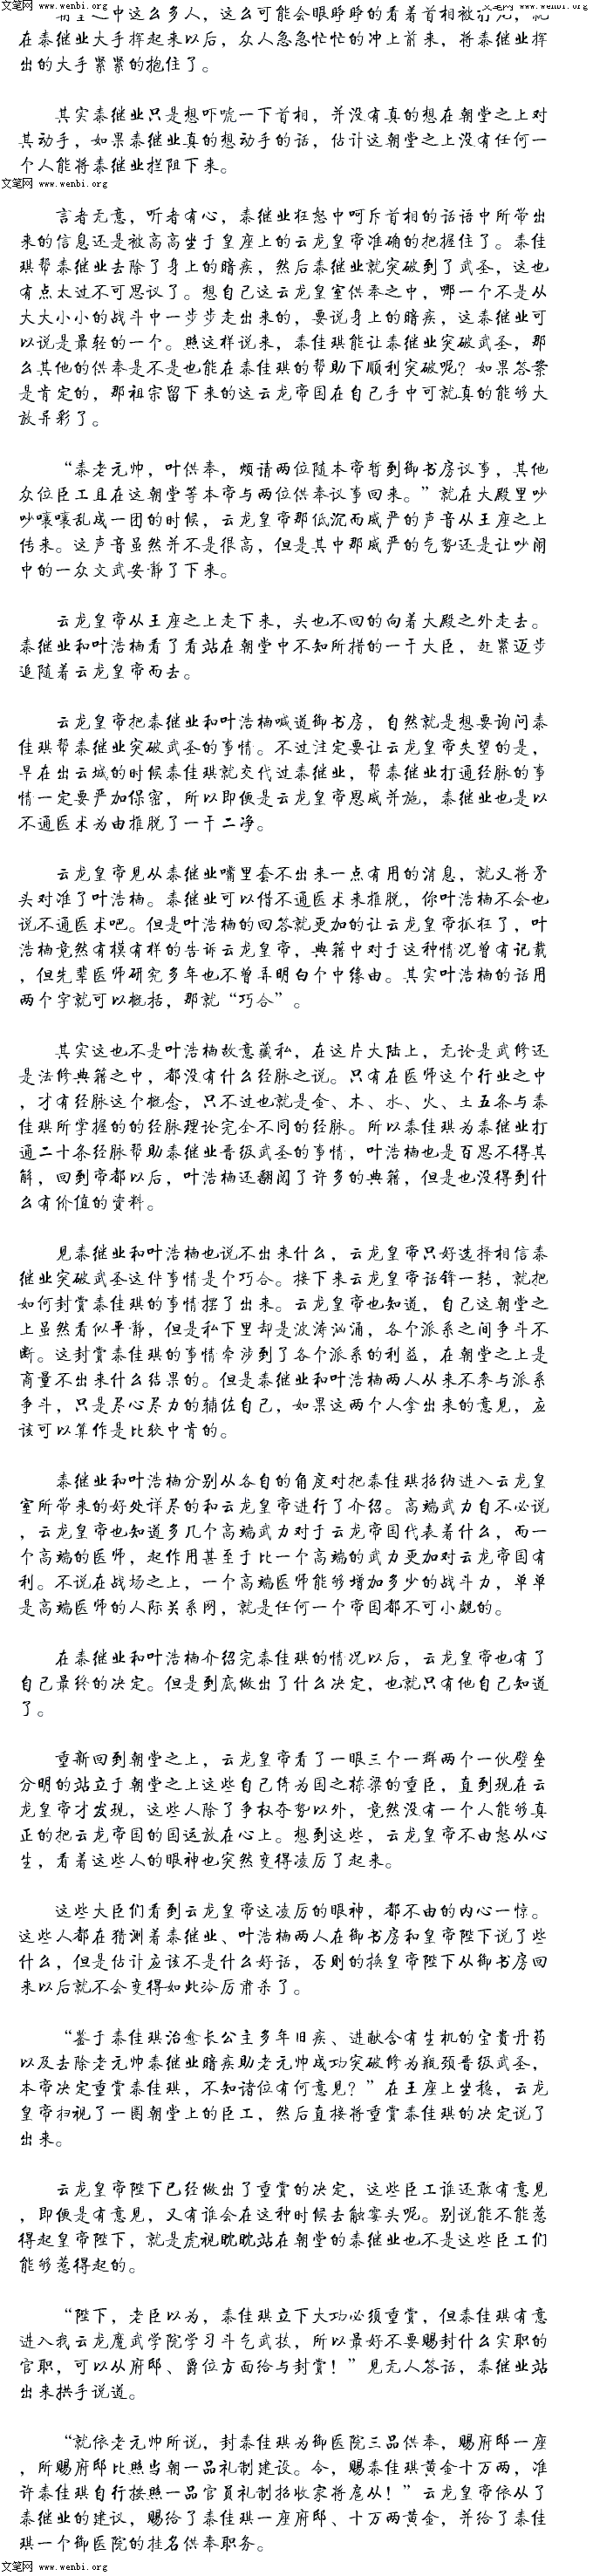 朝堂之中这么多人，这么可能会眼睁睁的看着首相被打死，就
在秦继业大手挥起来以后，众人急急忙忙的冲上前来，将秦继业挥
出的大手紧紧的抱住了。
其实秦继业只是想吓唬一下首相，并没有真的想在朝堂之上对
其动手，如果秦继业真的想动手的话，估计这朝堂之上没有任何一
个人能将秦继业拦阻下来。
文笔网 www.wenbi.org
言者无意，听者有心，秦继业狂怒中呵斥首相的话语中所带出
来的信息还是被高高坐于皇座上的云龙皇帝准确的把握住了。秦佳
琪帮秦继业去除了身上的暗疾，然后秦继业就突破到了武圣，这也
有点太过不可思议了。想自己这云龙皇室供奉之中，哪一个不是从
大大小小的战斗中一步步走出来的，要说身上的暗疾，这秦继业可
以说是最轻的一个。照这样说来，秦佳琪能让秦继业突破武圣，那
么其他的供奉是不是也能在秦佳琪的帮助下顺利突破呢？如果答案
是肯定的，那祖宗留下来的这云龙帝国在自己手中可就真的能够大
放异彩了。
“秦老元帅，叶供奉，烦请两位随本帝暂到御书房议事，其他
众位臣工且在这朝堂等本帝与两位供奉议事回来。”就在大殿里吵
吵嚷嚷乱成一团的时候，云龙皇帝那低沉而威严的声音从王座之上
传来。这声音虽然并不是很高，但是其中那威严的气势还是让吵闹
中的一众文武安静了下来。
云龙皇帝从王座之上走下来，头也不回的向着大殿之外走去。
秦继业和叶浩楠看了看站在朝堂中不知所措的一干大臣，赶紧迈步
追随着云龙皇帝而去。
云龙皇帝把秦继业和叶浩楠喊道御书房，自然就是想要询问秦
佳琪帮秦继业突破武圣的事情。不过注定要让云龙皇帝失望的是，
早在出云城的时候秦佳琪就交代过秦继业，帮秦继业打通经脉的事
情一定要严加保密，所以即便是云龙皇帝恩威并施，秦继业也是以
不通医术为由推脱了一干二净。
云龙皇帝见从秦继业嘴里套不出来一点有用的消息，就又将矛
头对准了叶浩楠。秦继业可以借不通医术来推脱，你叶浩楠不会也
说不通医术吧。但是叶浩楠的回答就更加的让云龙皇帝抓狂了，叶
浩楠竟然有模有样的告诉云龙皇帝，典籍中对于这种情况曾有记载
，但先辈医师研究多年也不曾弄明白个中缘由。其实叶浩楠的话用
两个字就可以概括，那就“巧合”。
其实这也不是叶浩楠故意藏私，在这片大陆上，无论是武修还
是法修典籍之中，都没有什么经脉之说。只有在医师这个行业之中
，才有经脉这个概念，只不过也就是金、木、水、火、土五条与秦
佳琪所掌握的的经脉理论完全不同的经脉。所以秦佳琪为秦继业打
通二十条经脉帮助秦继业晋级武圣的事情，叶浩楠也是百思不得其
解，回到帝都以后，叶浩楠还翻阅了许多的典籍，但是也没得到什
么有价值的资料。
见秦继业和叶浩楠也说不出来什么，云龙皇帝只好选择相信秦
继业突破武圣这件事情是个巧合。接下来云龙皇帝话锋一转，就把
如何封赏秦佳琪的事情摆了出来。云龙皇帝也知道，自己这朝堂之
上虽然看似平静，但是私下里却是波涛汹涌，各个派系之间争斗不
断。这封赏秦佳琪的事情牵涉到了各个派系的利益，在朝堂之上是
商量不出来什么结果的。但是秦继业和叶浩楠两人从来不参与派系
争斗，只是尽心尽力的辅佐自己，如果这两个人拿出来的意见，应
该可以算作是比较中肯的。
秦继业和叶浩楠分别从各自的角度对把秦佳琪招纳进入云龙皇
室所带来的好处详尽的和云龙皇帝进行了介绍。高端武力自不必说
，云龙皇帝也知道多几个高端武力对于云龙帝国代表着什么，而一
个高端的医师，起作用甚至于比一个高端的武力更加对云龙帝国有
利。不说在战场之上，一个高端医师能够增加多少的战斗力，单单
是高端医师的人际关系网，就是任何一个帝国都不可小觑的。
在秦继业和叶浩楠介绍完秦佳琪的情况以后，云龙皇帝也有了
自己最终的决定。但是到底做出了什么决定，也就只有他自己知道
了。
重新回到朝堂之上，云龙皇帝看了一眼三个一群两个一伙壁垒
分明的站立于朝堂之上这些自己倚为国之栋梁的重臣，直到现在云
龙皇帝才发现，这些人除了争权夺势以外，竟然没有一个人能够真
正的把云龙帝国的国运放在心上。想到这些，云龙皇帝不由怒从心
生，看着这些人的眼神也突然变得凌厉了起来。
这些大臣们看到云龙皇帝这凌厉的眼神，都不由的内心一惊。
这些人都在猜测着秦继业、叶浩楠两人在御书房和皇帝陛下说了些
什么，但是估计应该不是什么好话，否则的换皇帝陛下从御书房回
来以后就不会变得如此冷厉肃杀了。
“鉴于秦佳琪治愈长公主多年旧疾、进献含有生机的宝贵丹药
以及去除老元帅秦继业暗疾助老元帅成功突破修为瓶颈晋级武圣，
本帝决定重赏秦佳琪，不知诸位有何意见？”在王座上坐稳，云龙
皇帝扫视了一圈朝堂上的臣工，然后直接将重赏秦佳琪的决定说了
出来。
云龙皇帝陛下已经做出了重赏的决定，这些臣工谁还敢有意见
，即便是有意见，又有谁会在这种时候去触霉头呢。别说能不能惹
得起皇帝陛下，就是虎视眈眈站在朝堂的秦继业也不是这些臣工们
能够惹得起的。
“陛下，老臣以为，秦佳琪立下大功必须重赏，但秦佳琪有意
进入我云龙魔武学院学习斗气武技，所以最好不要赐封什么实职的
官职，可以从府邸、爵位方面给与封赏！”见无人答话，秦继业站
出来拱手说道。
“就依老元帅所说，封秦佳琪为御医院三品供奉，赐府邸一座
，所赐府邸比照当朝一品礼制建设。令，赐秦佳琪黄金十万两，准
许秦佳琪自行按照一品官员礼制招收家将扈从！”云龙皇帝依从了
秦继业的建议，赐给了秦佳琪一座府邸、十万两黄金，并给了秦佳
琪一个御医院的挂名供奉职务。
文笔网 www.wenbi.org